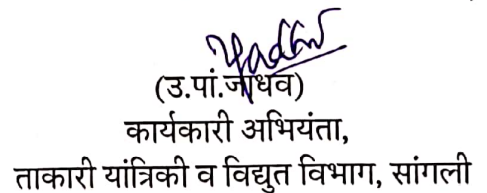 (उ.पां.जाधव)
कार्यकारी अभियंता,
ताकारी यांत्रिकी व विद्युत विभाग, सांगली